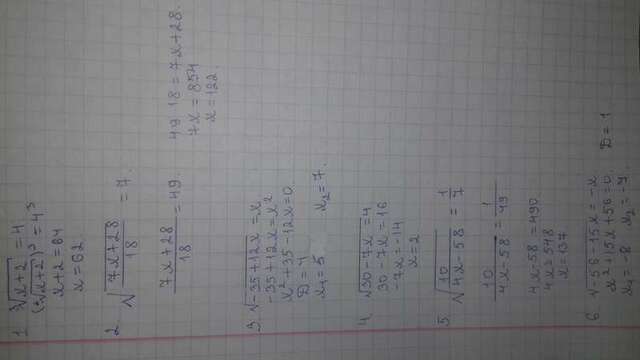 1 ∛(x+2) = 4
(∛x+2)³ = 4³
x+2 = 64
x = 62.
2 √((7x+28)/18) = 7.
(7x+28)/18 = 49.
49·18 = 7x+28.
7x = 854
x = 122.
3 √(-35+12x) = x.
-35+12x = x²
x²+35-12x = 0.
D = 4
x₁ = 5 x₂ = 7.
4 √(30-7x) = 4
30-7x = 16
-7x = -14
x = 2
5 √(10/(4x-58)) = 1/7
10/(4x-58) = 1/49
4x-58 = 490
4x = 548
x = 137
6 √(-56-15x) = -x
x²+15x+56 = 0. D = 1
x₁ = -8 x₂ = -7.